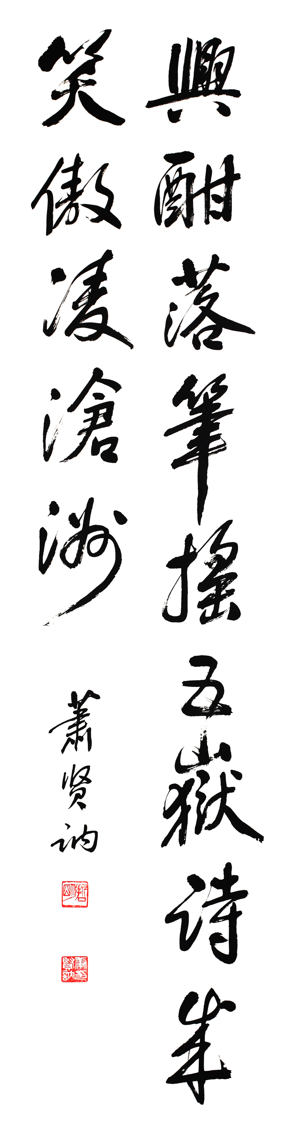 興酣落筆搖五嶽詩成
笑傲凌滄洲
蕭贤